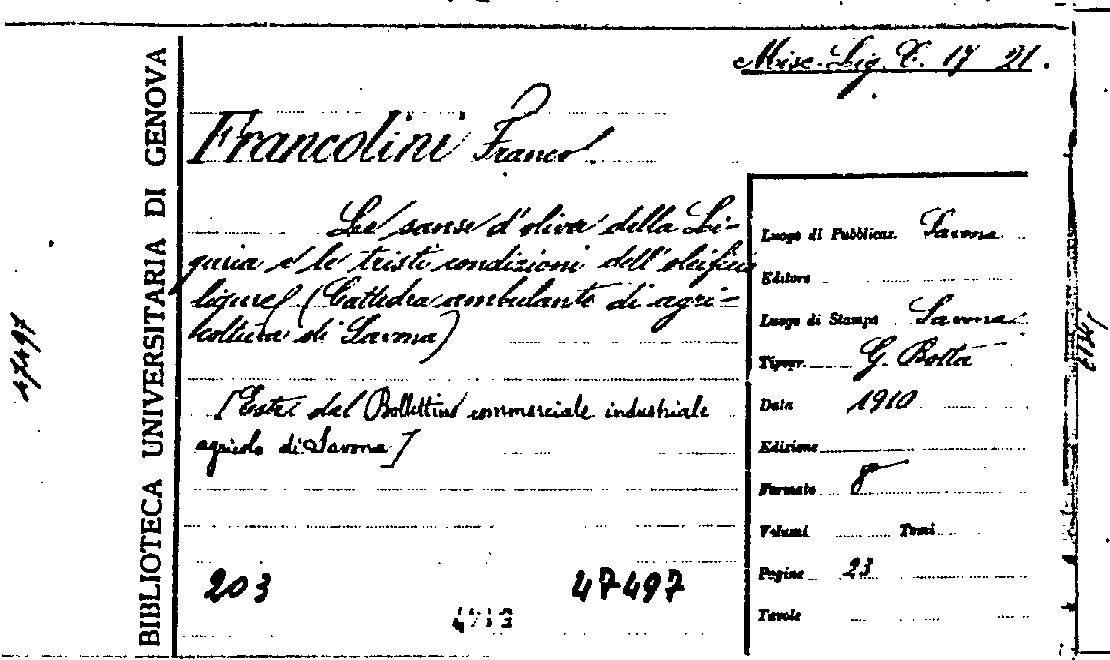 Misc. Lig. C. 17 21.
BIBLIOTECA UNIVERSITARIA DI GENOVA
Francolini Franco.
Le sanse d'oliva della Li-
guria e le tristi condizioni dell'oleificio
ligure (Cattedra ambulante di agri-
coltura di Savona)
[Estr. dal Bollettino commerciale industriale
agricolo di Savona]
203
47497
Luogo di Pubblicaz. Savona
Editore
Luogo di Stampa Savona
Tipogr. G. Botta
Data 1910
Edizione
Formato 8°
Volumi Tomi
Pagine 23
Tavole
47497